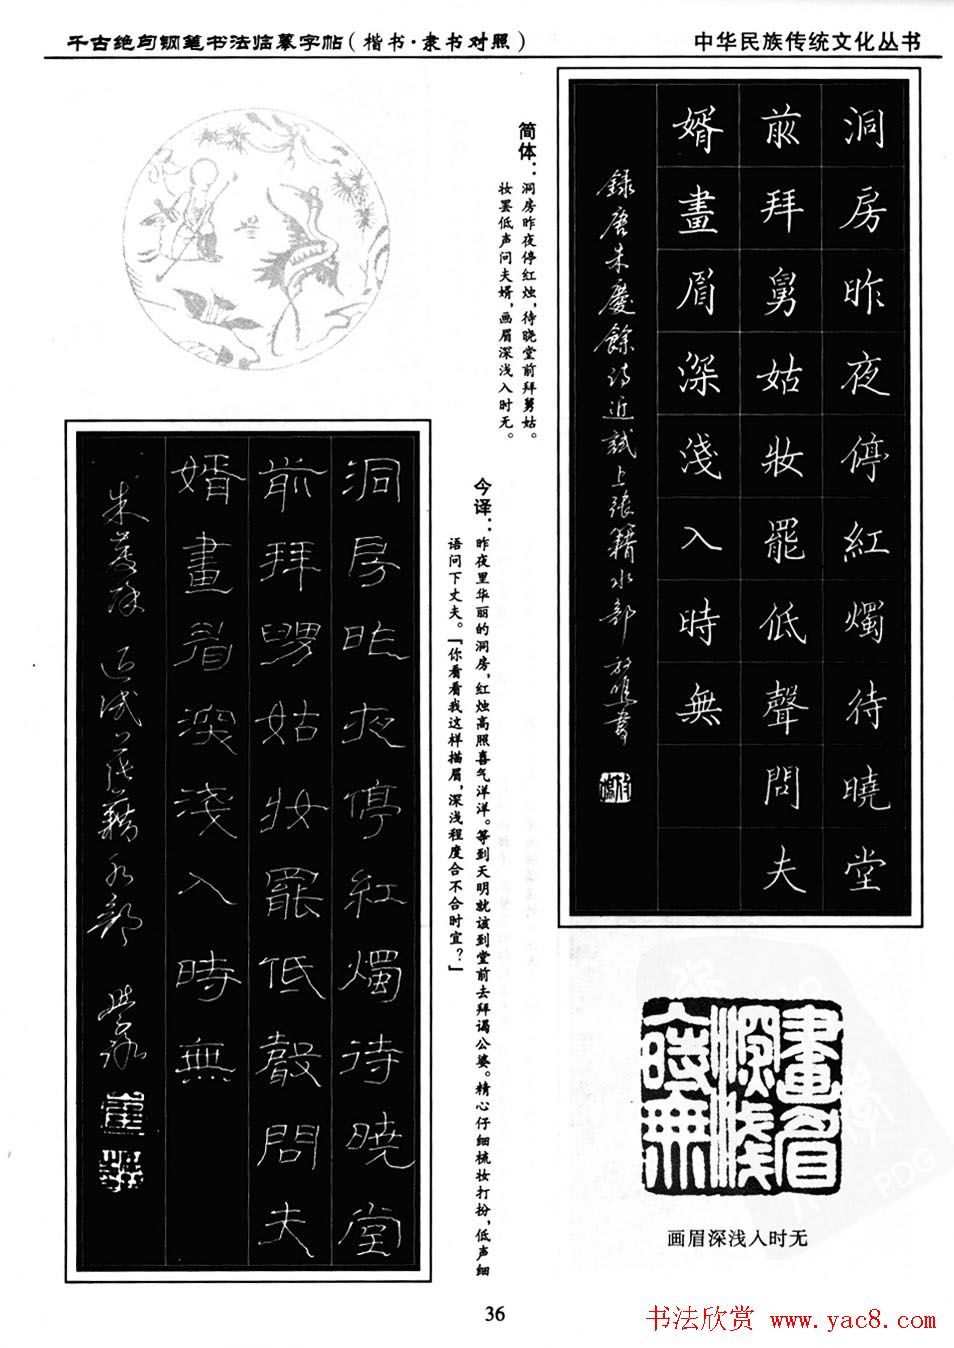 千古绝句钢笔书法临摹字帖(楷书·隶书对照)
中华民族传统文化丛书
洞房昨夜停紅燭待曉堂
前拜舅姑妝罷低聲問夫
婿畫眉深淺入時無
錄唐朱慶餘詩近試上張籍水部
简体：洞房昨夜停红烛，待晓堂前拜舅姑。
妆罢低声问夫婿，画眉深浅入时无。
今译：昨夜里华丽的洞房，红烛高照喜气洋洋。等到天明就该到堂前去拜谒公婆。精心仔细梳妆打扮，低声细
语问下丈夫。「你看看我这样描眉，深浅程度合不合时宜？」
洞房昨夜停紅燭待曉堂
前拜舅姑妝罷低聲問夫
婿畫眉深淺入時無
朱慶餘近試上張籍水部
畫眉
深淺
入時無
画眉深浅入时无
36
书法欣赏 www.yac8.com